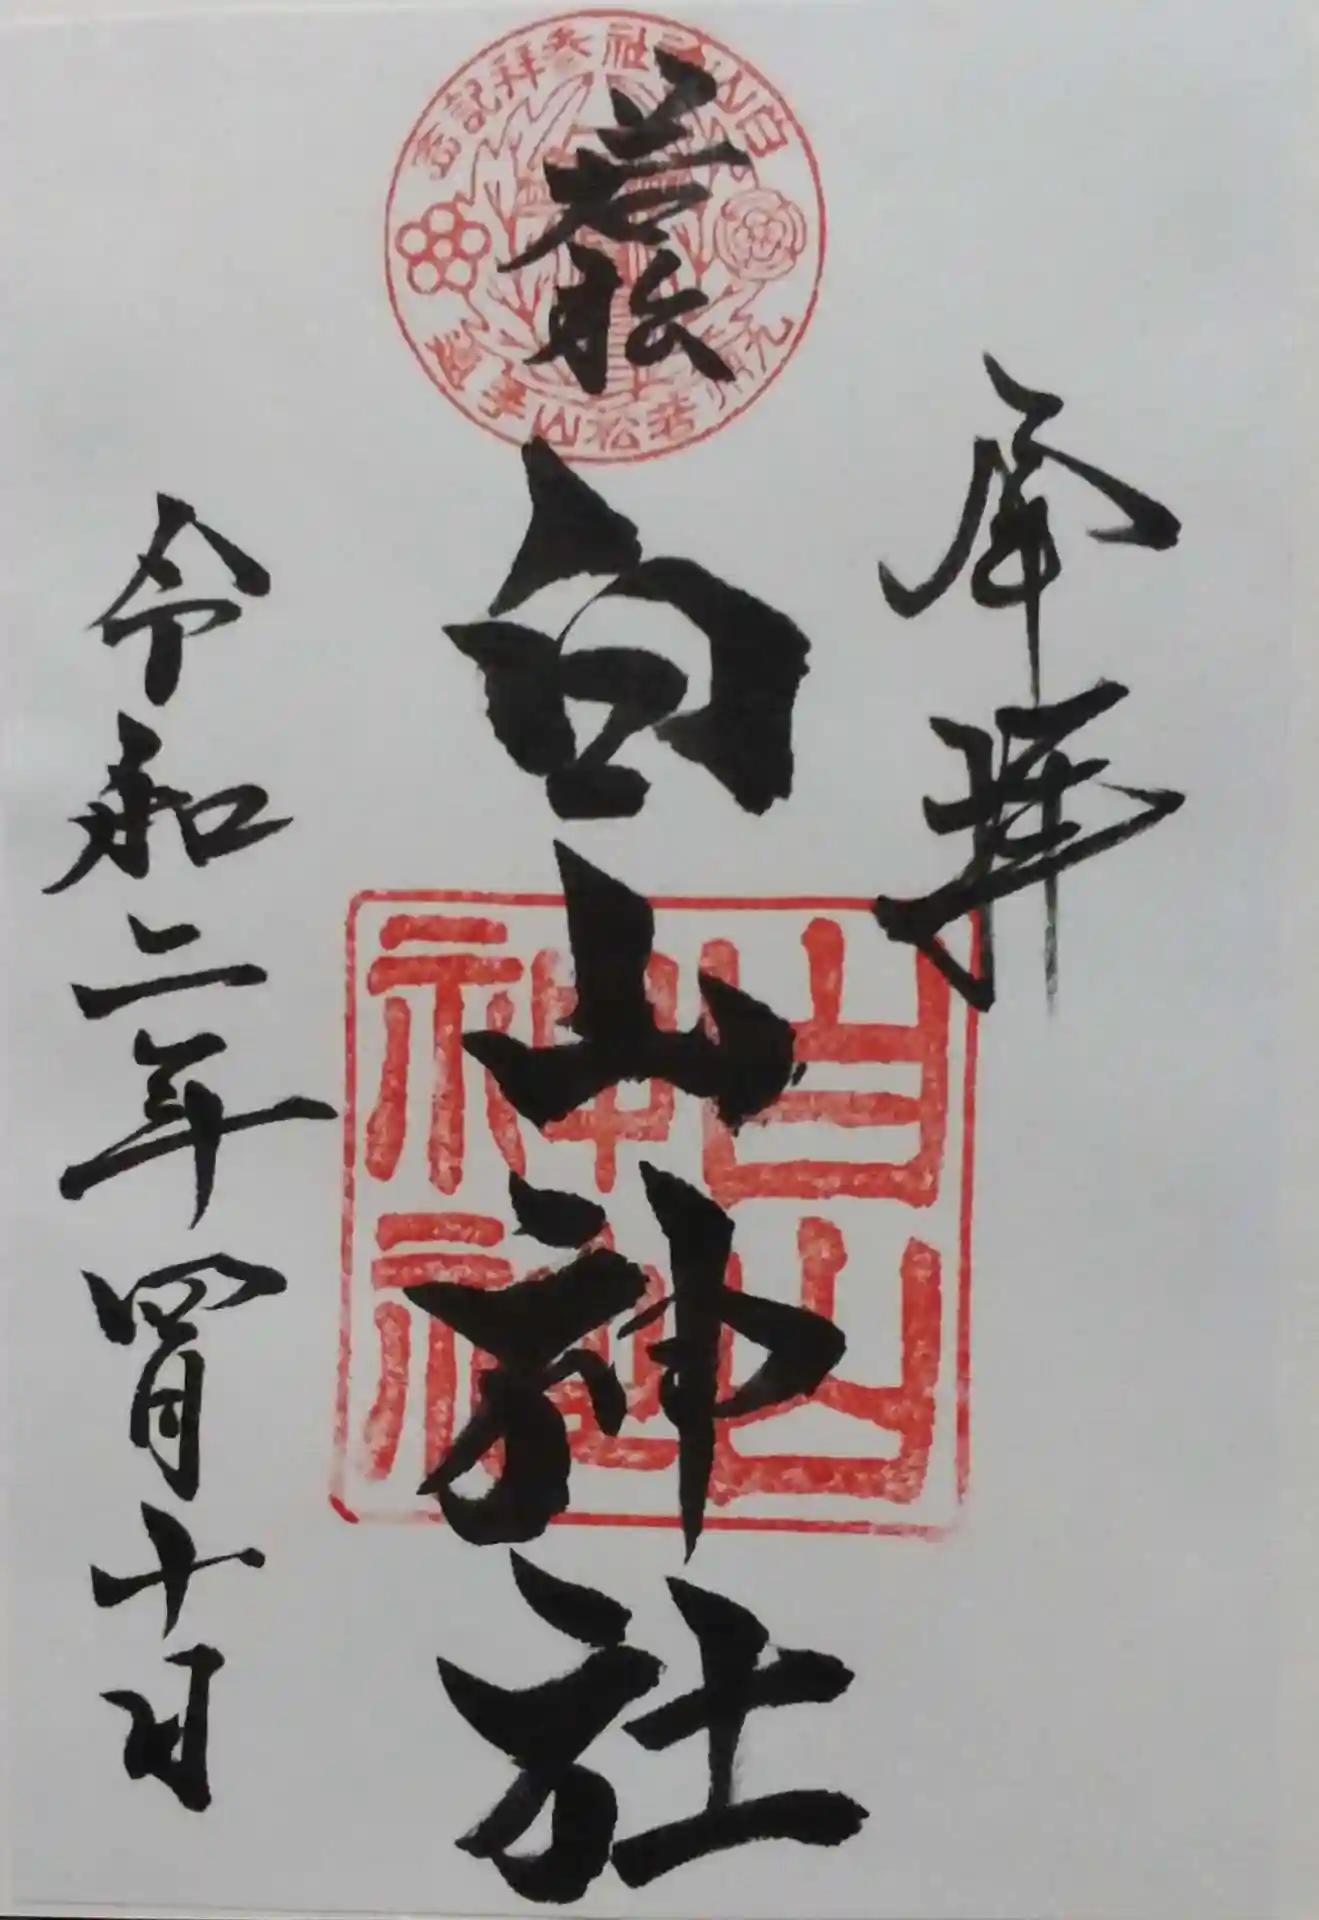 奉拝
若松
白山神社
令和二年四月十日
白山神社参拝記念
九州若松山手通
白山
神社